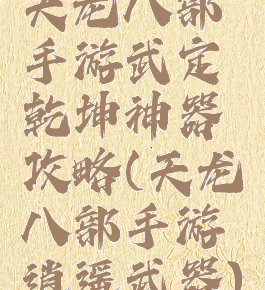 天龙八部
手游武定
乾坤神器
攻略(天龙
八部手游
逍遥武器)